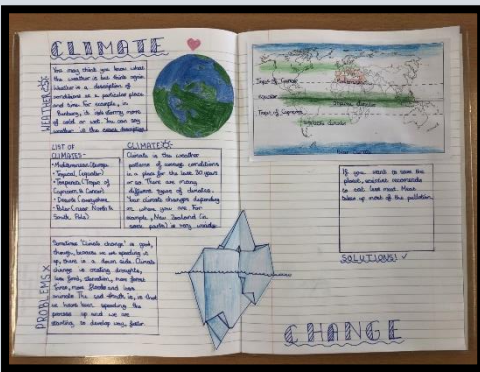 CLIMATE
WEATHER
You may think you know what
the weather is but think again.
Weather is a description of
conditions at a particular place
and time. For example, in
it is
of cold or wet. You can say
weather is the
LIST OF
CLIMATES-
• Mediterranean (Europe
• Tropical (equator)
• Temperate (Tropic of
Cancer & Cancer)
• Deserts (everywhere
• Polar (near North &
South Pole)
CLIMATE
Climate is the weather
patterns of average conditions
in a place for the last 30 years
or so. There are many
different types of climates.
Your climate changes depending
in where you are. For
example, New Zealand (in
some parts) is very
PROBLEMS X
Sometimes 'Climate change' is good,
though, because we are speeding it
up, there is a down side. Climate
change is creating droughts,
less food, starvation, more forest
fires, more floods and less
animals. The sad truth is, is that
we have been speeding the
process up and we are
starting to develop very faster.
Tropic of Cancer
equator
Tropic of Capricorn
If you want to save the
planet, scientist recomends
to eat less meat. Meat
takes up most of the pollution.
SOLUTIONS! ✓
CHANGE